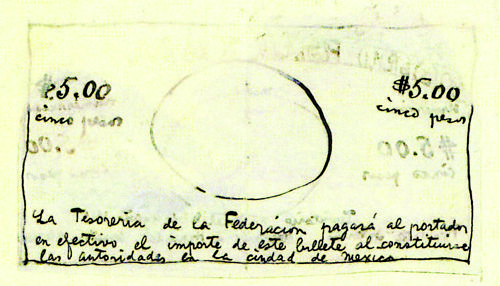 $5.00 $5.00
cinco pesos cinco pesos
La Tesoreria de la Federacion pagará al portador
en efectivo, el importe de este billete al constituirse
las autoridades en la ciudad de Mexico